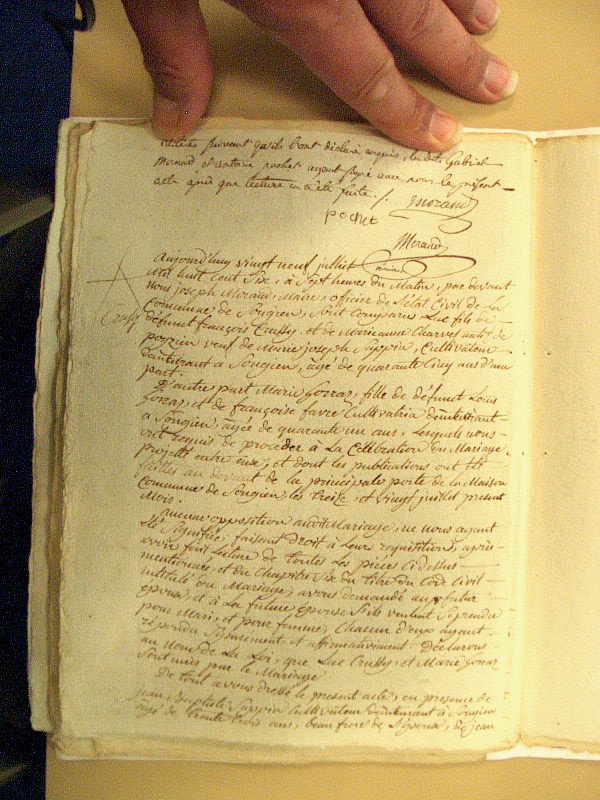 présent qu'ils l'ont déclaré requis, les dits Gabriel
Morand et antoine pochet ayant signé avec nous le présent
acte après que lecture en a été faite. /. morand
pochet
Morand
maire
aujourd'huy vingt neuf julliet
Mil huit cent Six, à Sept heures du Matin, par devant
Nous joseph Morand, Maire, officier de l'état Civil de la
Commune de Songieu, Sont Comparus Luc fils de
défunt françois Crussy, et de Marieanne Charvet natif de
veuf de Marie joseph Pappin, Cultivateur
demeurant à Songieu, âgé de quarante Cinq ans d'une
part.
Crussy
D'autre part Marie Gorraz, fille de défunt Louis
Gorraz, et de françoise favre Cultivatrice demeurant
a Songieu, âgée de quarante un ans, Lesquels nous
ont requis de procéder à La Célébration du Mariage
projetté entre eux; et dont les publications ont été
faittes au devant de la principale porte de la Maison
Commune de Songieu, les treize, et vingt juillet present
Mois.
aucune opposition audit Mariage, ne nous ayant
été Signifiée, faisant droit à Leurs requisitions, après
avoir fait Lecture de toutes Les pièces Cidessus
mentionnées, et du Chapitre Six du titre du Code Civil
intitulé du Mariage, avons demandé au futur
épouse, et à La future épouse S'ils veulent Se prendre
pour Mari, et pour femme; Chacun d'eux ayant
répondu Séparement, et affirmativement: Déclarons
au Nom de La Loi, que Luc Crussy, et Marie Gorraz
Sont unis par le Mariage.
De tout a vons dressé le present acte, en presence de
jean Baptiste Pappin Cultivateur demeurant à Songieu
agé de trente trois ans, beau frere de L'épouse, de jean